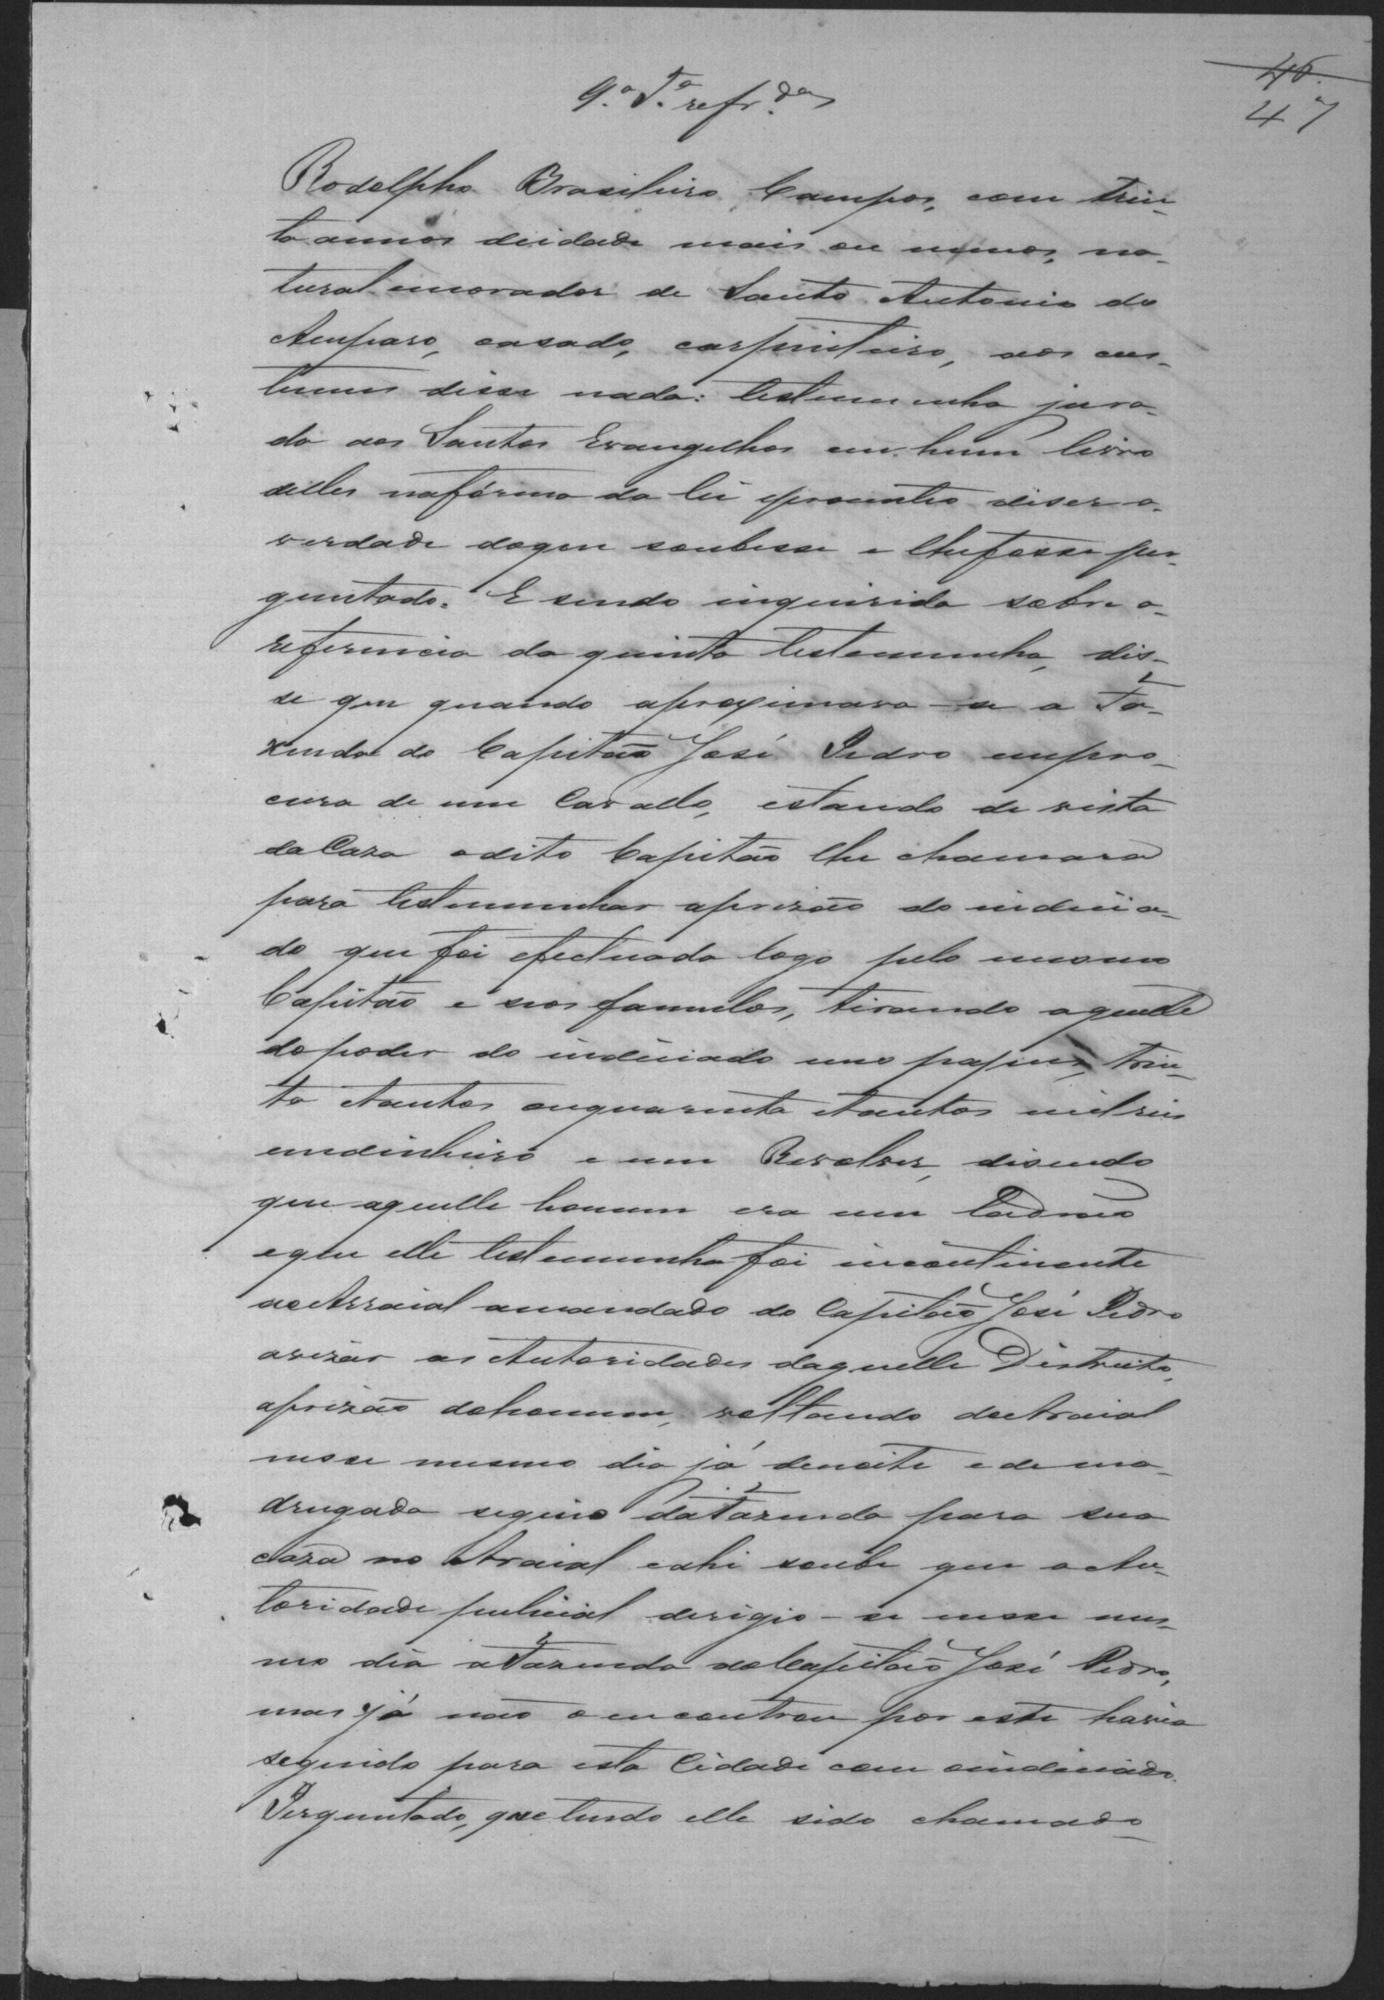 46.
47
9.ª T.ª refr.das
Rodolpho Brasileiro Campos, com trin-
ta annos deidade mais ou menos, na-
tural morador de Santo Antonio do
Amparo, casado, carpinteiro, aos cus-
tumes disse nada: testemunha jura-
da aos Santos Evangelhos em hum livro
delles nafórma da lei eprometteo diser a-
verdade doque soubesse e lhefosse per-
guntado. E sendo inquirida sobre a-
referencia da quinta testemunha, dis-
se que quando aproximava-se a Fa-
zenda do Capitão José Pedro empro-
cura de um Cavallo, estando de vista
daCaza odito Capitão lhe chamara
para testemunhar aprizão do indicia-
do que foi efectuada logo pelo mesmo
Capitão e seos famulos, tirando aquelle
dopoder do indiciado uns papeis, trin-
ta etantos ouquarenta etantos milreis
emdinheiro e um Revolver, disendo
que aquelle homem era um ladrão
eque elle testemunha foi incontinente
aoArraial amandado do Capitão José Pedro
avizar as Autoridades daquelle Districto,
aprizão dohomem, voltando doArraial
nesse mesmo dia já denoite e de ma-
drugada seguio daFazenda para sua
caza no Arraial eahi soube que a Au-
toridade pulicial dirigio-se nesse mes-
mo dia aFazenda doCapitão José Pedro,
mas já não o encontrou por este havia
seguido para esta Cidade com oindiciado.
Perguntado, que tendo elle sido chamado